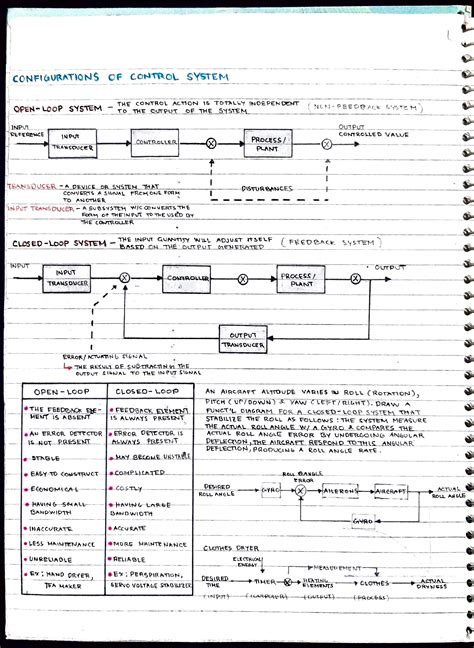 CONFIGURATIONS OF CONTROL SYSTEM
OPEN-LOOP SYSTEM - THE CONTROL ACTION IS TOTALLY INDEPENDENT (NON-FEEDBACK SYSTEM)
TO THE OUTPUT OF THE SYSTEM
INPUT
REFERENCE
INPUT
TRANSDUCER
CONTROLLER
PROCESS/
PLANT
OUTPUT
CONTROLLED VALUE
DISTURBANCES
TRANSDUCER - A DEVICE OR SYSTEM THAT
CONVERTS A SIGNAL FROM ONE FORM
TO ANOTHER
INPUT TRANSDUCER - A SUBSYSTEM W/C CONVERTS THE
FORM OF THE INPUT TO THE USED BY
THE CONTROLLER
CLOSED-LOOP SYSTEM - THE INPUT QUANTITY WILL ADJUST ITSELF (FEEDBACK SYSTEM)
BASED ON THE OUTPUT GENERATED
INPUT
INPUT
TRANSDUCER
CONTROLLER
PROCESS/
PLANT
OUTPUT
OUTPUT
TRANSDUCER
ERROR/ACTUATING SIGNAL
THE RESULT OF SUBTRACTING THE
OUTPUT SIGNAL TO THE INPUT SIGNAL
OPEN-LOOP
• THE FEEDBACK ELE-
MENT IS ABSENT
• AN ERROR DETECTOR
IS NOT PRESENT
• STABLE
• EASY TO CONSTRUCT
• ECONOMICAL
• HAVING SMALL
BANDWIDTH
• INACCURATE
• LESS MAINTENANCE
• UNRELIABLE
• EX: HAND DRYER,
TEA MAKER
CLOSED-LOOP
• FEEDBACK ELEMENT
IS ALWAYS PRESENT
• ERROR DETECTOR IS
ALWAYS PRESENT
• MAY BECOME UNSTABLE
• COMPLICATED
• COSTLY
• HAVING LARGE
BANDWIDTH
• ACCURATE
• MORE MAINTENANCE
• RELIABLE
• EX: PERSPIRATION,
SERVO VOLTAGE STABILIZER
AN AIRCRAFT ALTITUDE VARIES IN ROLL (ROTATION),
PITCH (UP/DOWN) & YAW (LEFT/RIGHT). DRAW A
FUNCT'L DIAGRAM FOR A CLOSED-LOOP SYSTEM THAT
STABILIZE THE ROLL AS FOLLOWS: THE SYSTEM MEASURE
THE ACTUAL ROLL ANGLE W/ A GYRO & COMPARES THE
ACTUAL ROLL ANGLE ERROR BY UNDERGOING ANGULAR
DEFLECTION, THE AIRCRAFT RESPOND TO THIS ANGULAR
DEFLECTION, PRODUCING A ROLL RATE.
DESIRED
ROLL ANGLE
GYRO
ROLL ANGLE
ERROR
AILERONS
AIRCRAFT
ACTUAL
ROLL ANGLE
GYRO
CLOTHES DRYER
ELECTRICAL
ENERGY
MEASUREMENT
DESIRED
TIME
TIMER
HEATING
ELEMENTS
CLOTHES
ACTUAL
DRYNESS
(INPUT)
(OUTPUT)
(PROCESS)